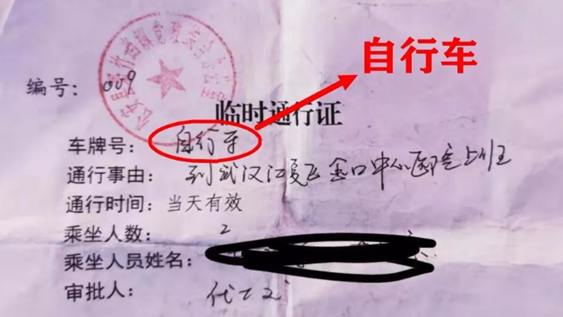 自行车
编号: 009
临时通行证
车牌号: 自行车
通行事由: 到武汉江夏区金口中心医院上班
通行时间: 当天有效
乘坐人数: 2
乘坐人员姓名:
审批人: